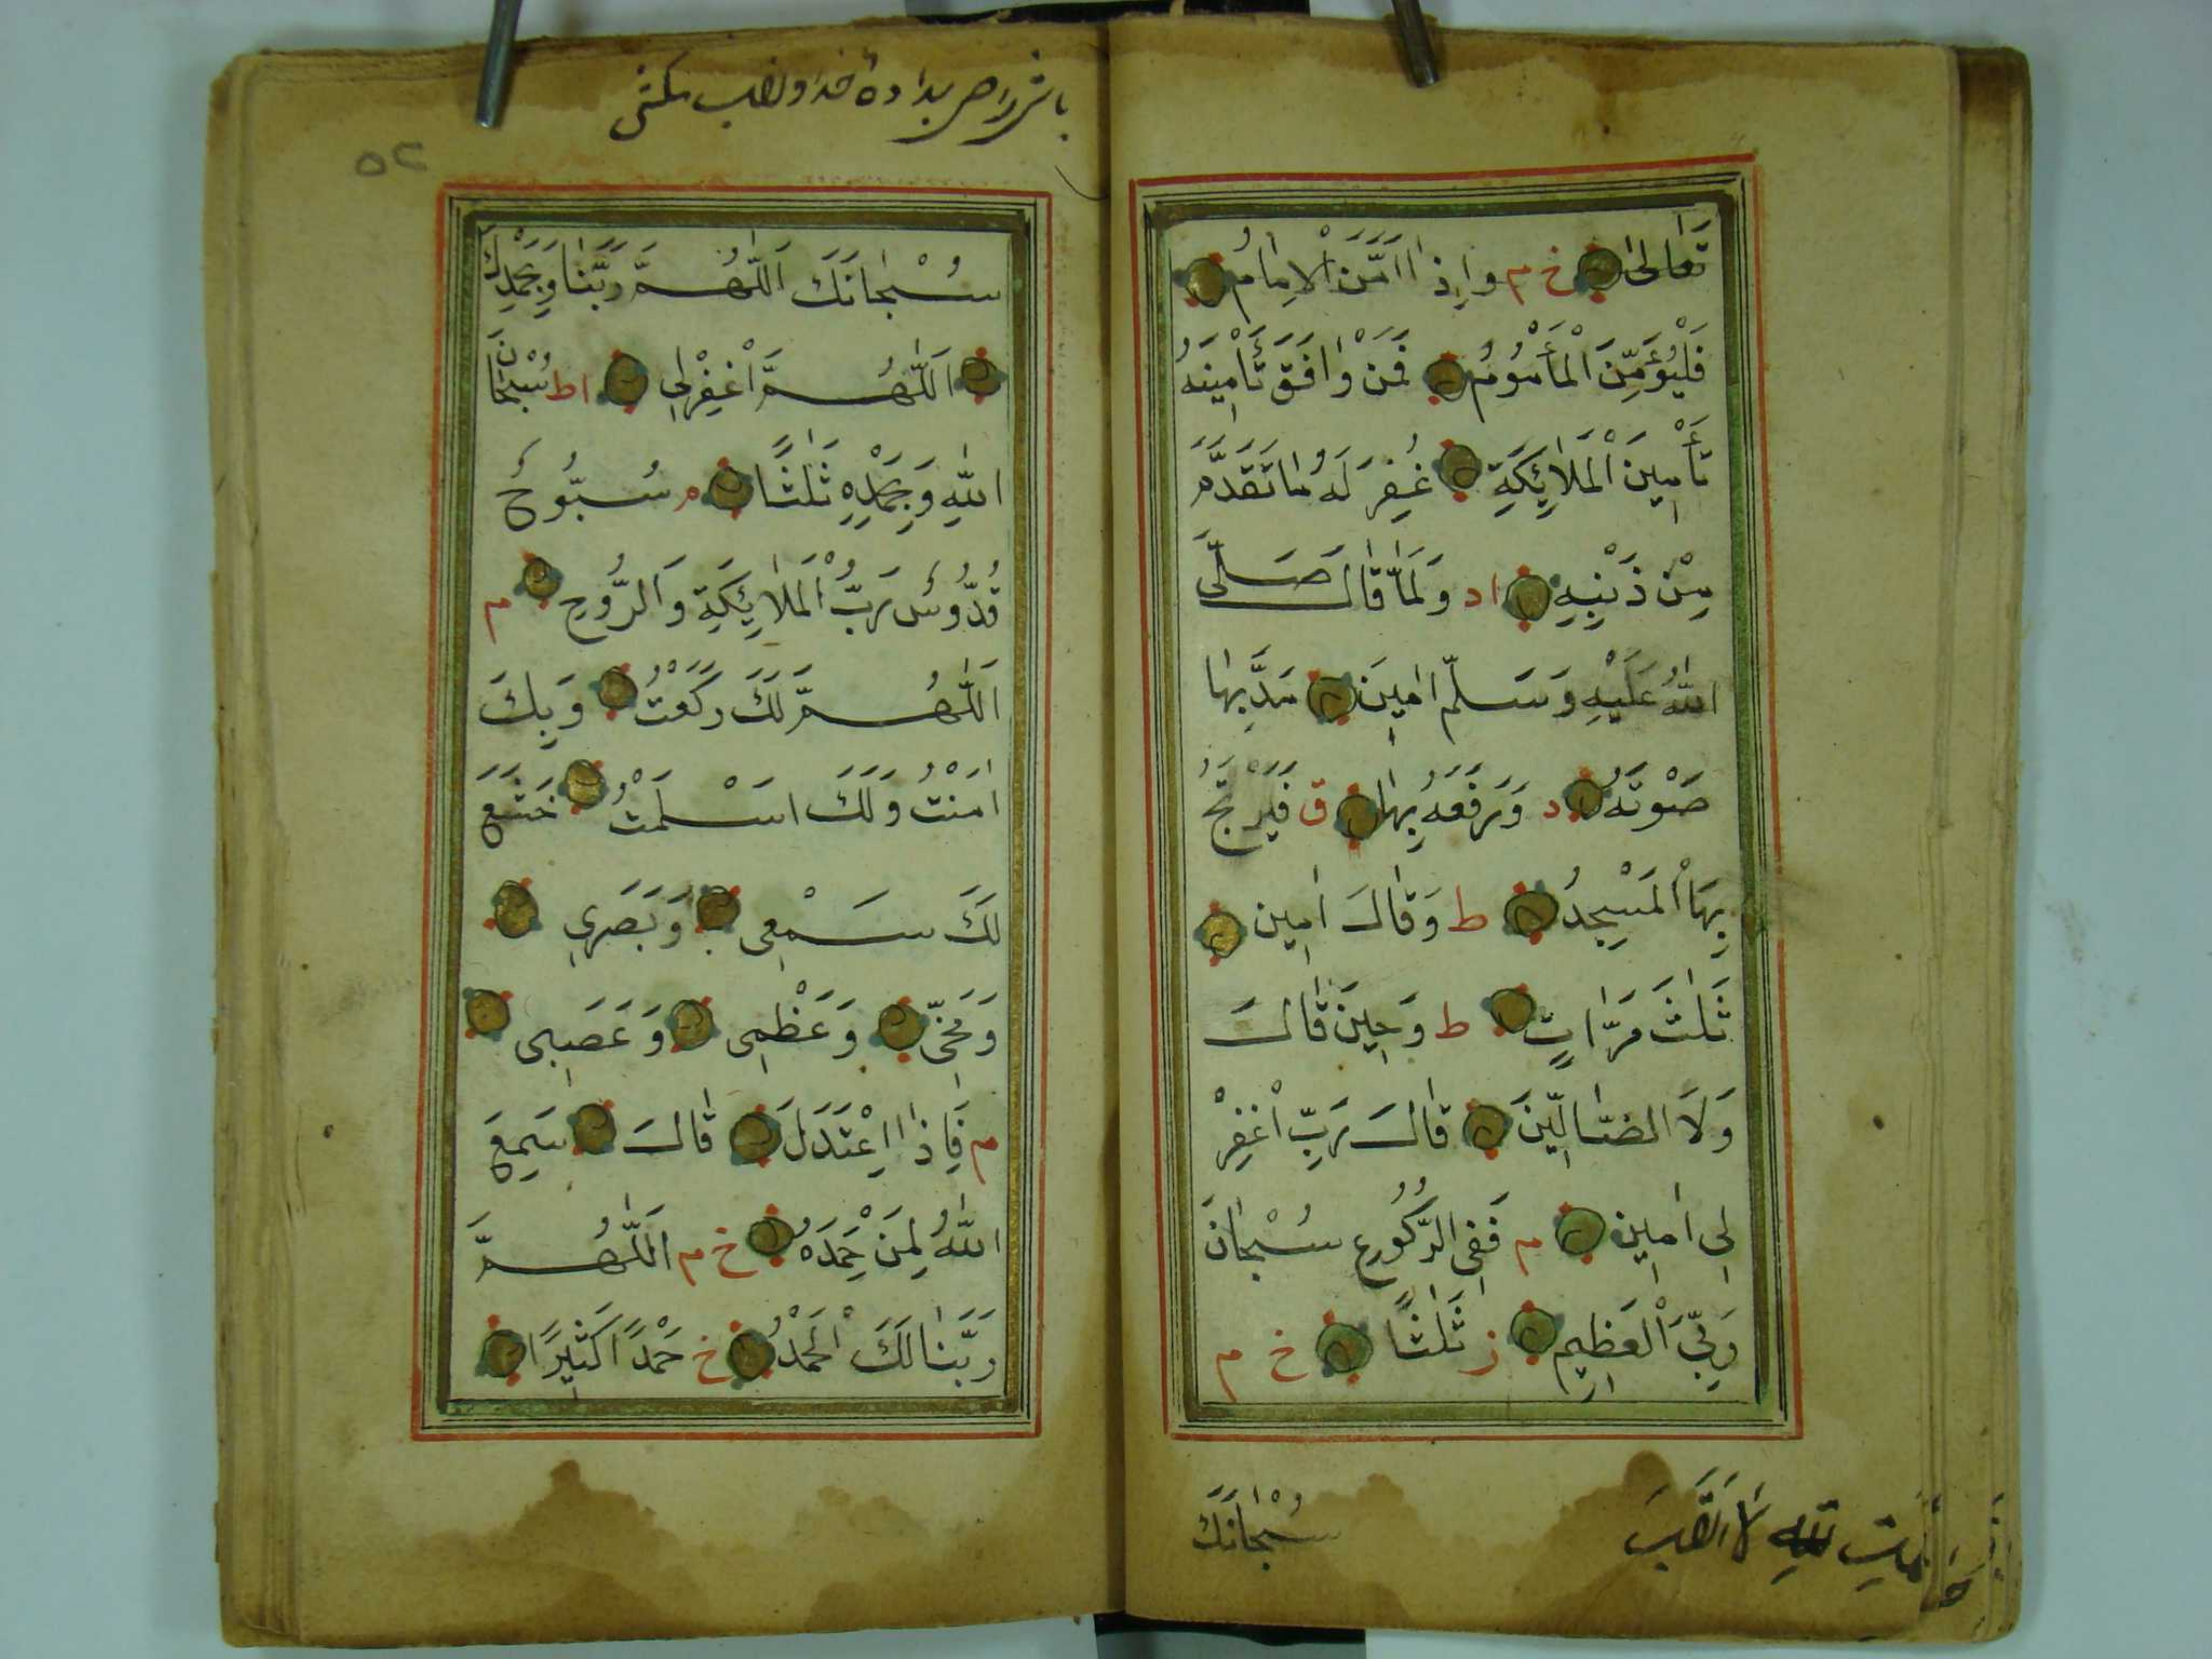 تَعَالٰى خ م وَاِذَا اَمَّنَ الْاِمَامُ
فَلْيُؤَمِّنَ الْمَأْمُومُ فَمَنْ وَافَقَ تَأْمِينَهُ
تَأْمِينَ الْمَلَائِكَةِ غُفِرَ لَهُ مَا تَقَدَّمَ
مِنْ ذَنْبِهِ اد وَلَمَّا قَالَ صَلَّى
اللّٰهُ عَلَيْهِ وَسَلَّمَ اٰمِينَ مَدَّ بِهَا
صَوْتَهُ د وَرَفَعَهُ بِهَا ق فَيَرْتَجُّ
بِهَا الْمَسْجِدُ ط وَقَالَ اٰمِين
ثَلٰثَ مَرَّاتٍ ط وَحِينَ قَالَ
وَلَا الضَّالِّينَ قَالَ رَبِّ اغْفِرْ
لِى اٰمِين م فَفِى الرُّكُوعِ سُبْحَانَ
رَبِّىَ الْعَظِيمِ ز ثَلٰثًا خ م
سُبْحَانَكَ
سُبْحَانَكَ اَللّٰهُمَّ رَبَّنَا وَبِحَمْدِكَ
اَللّٰهُمَّ اغْفِرْلِى اط سُبْحَانَ
اللّٰهِ وَبِحَمْدِهِ ثَلٰثًا م سُبُّوحٌ
قُدُّوسٌ رَبُّ الْمَلَائِكَةِ وَالرُّوحِ م
اَللّٰهُمَّ لَكَ رَكَعْتُ وَبِكَ
اٰمَنْتُ وَلَكَ اَسْلَمْتُ خَشَعَ
لَكَ سَمْعِى وَبَصَرِى
وَمُخِّى وَعَظْمِى وَعَصَبِى
م فَاِذَا اِعْتَدَلَ قَالَ سَمِعَ
اللّٰهُ لِمَنْ حَمِدَهُ خ م اَللّٰهُمَّ
رَبَّنَا لَكَ الْحَمْدُ خ حَمْدًا كَثِيرًا